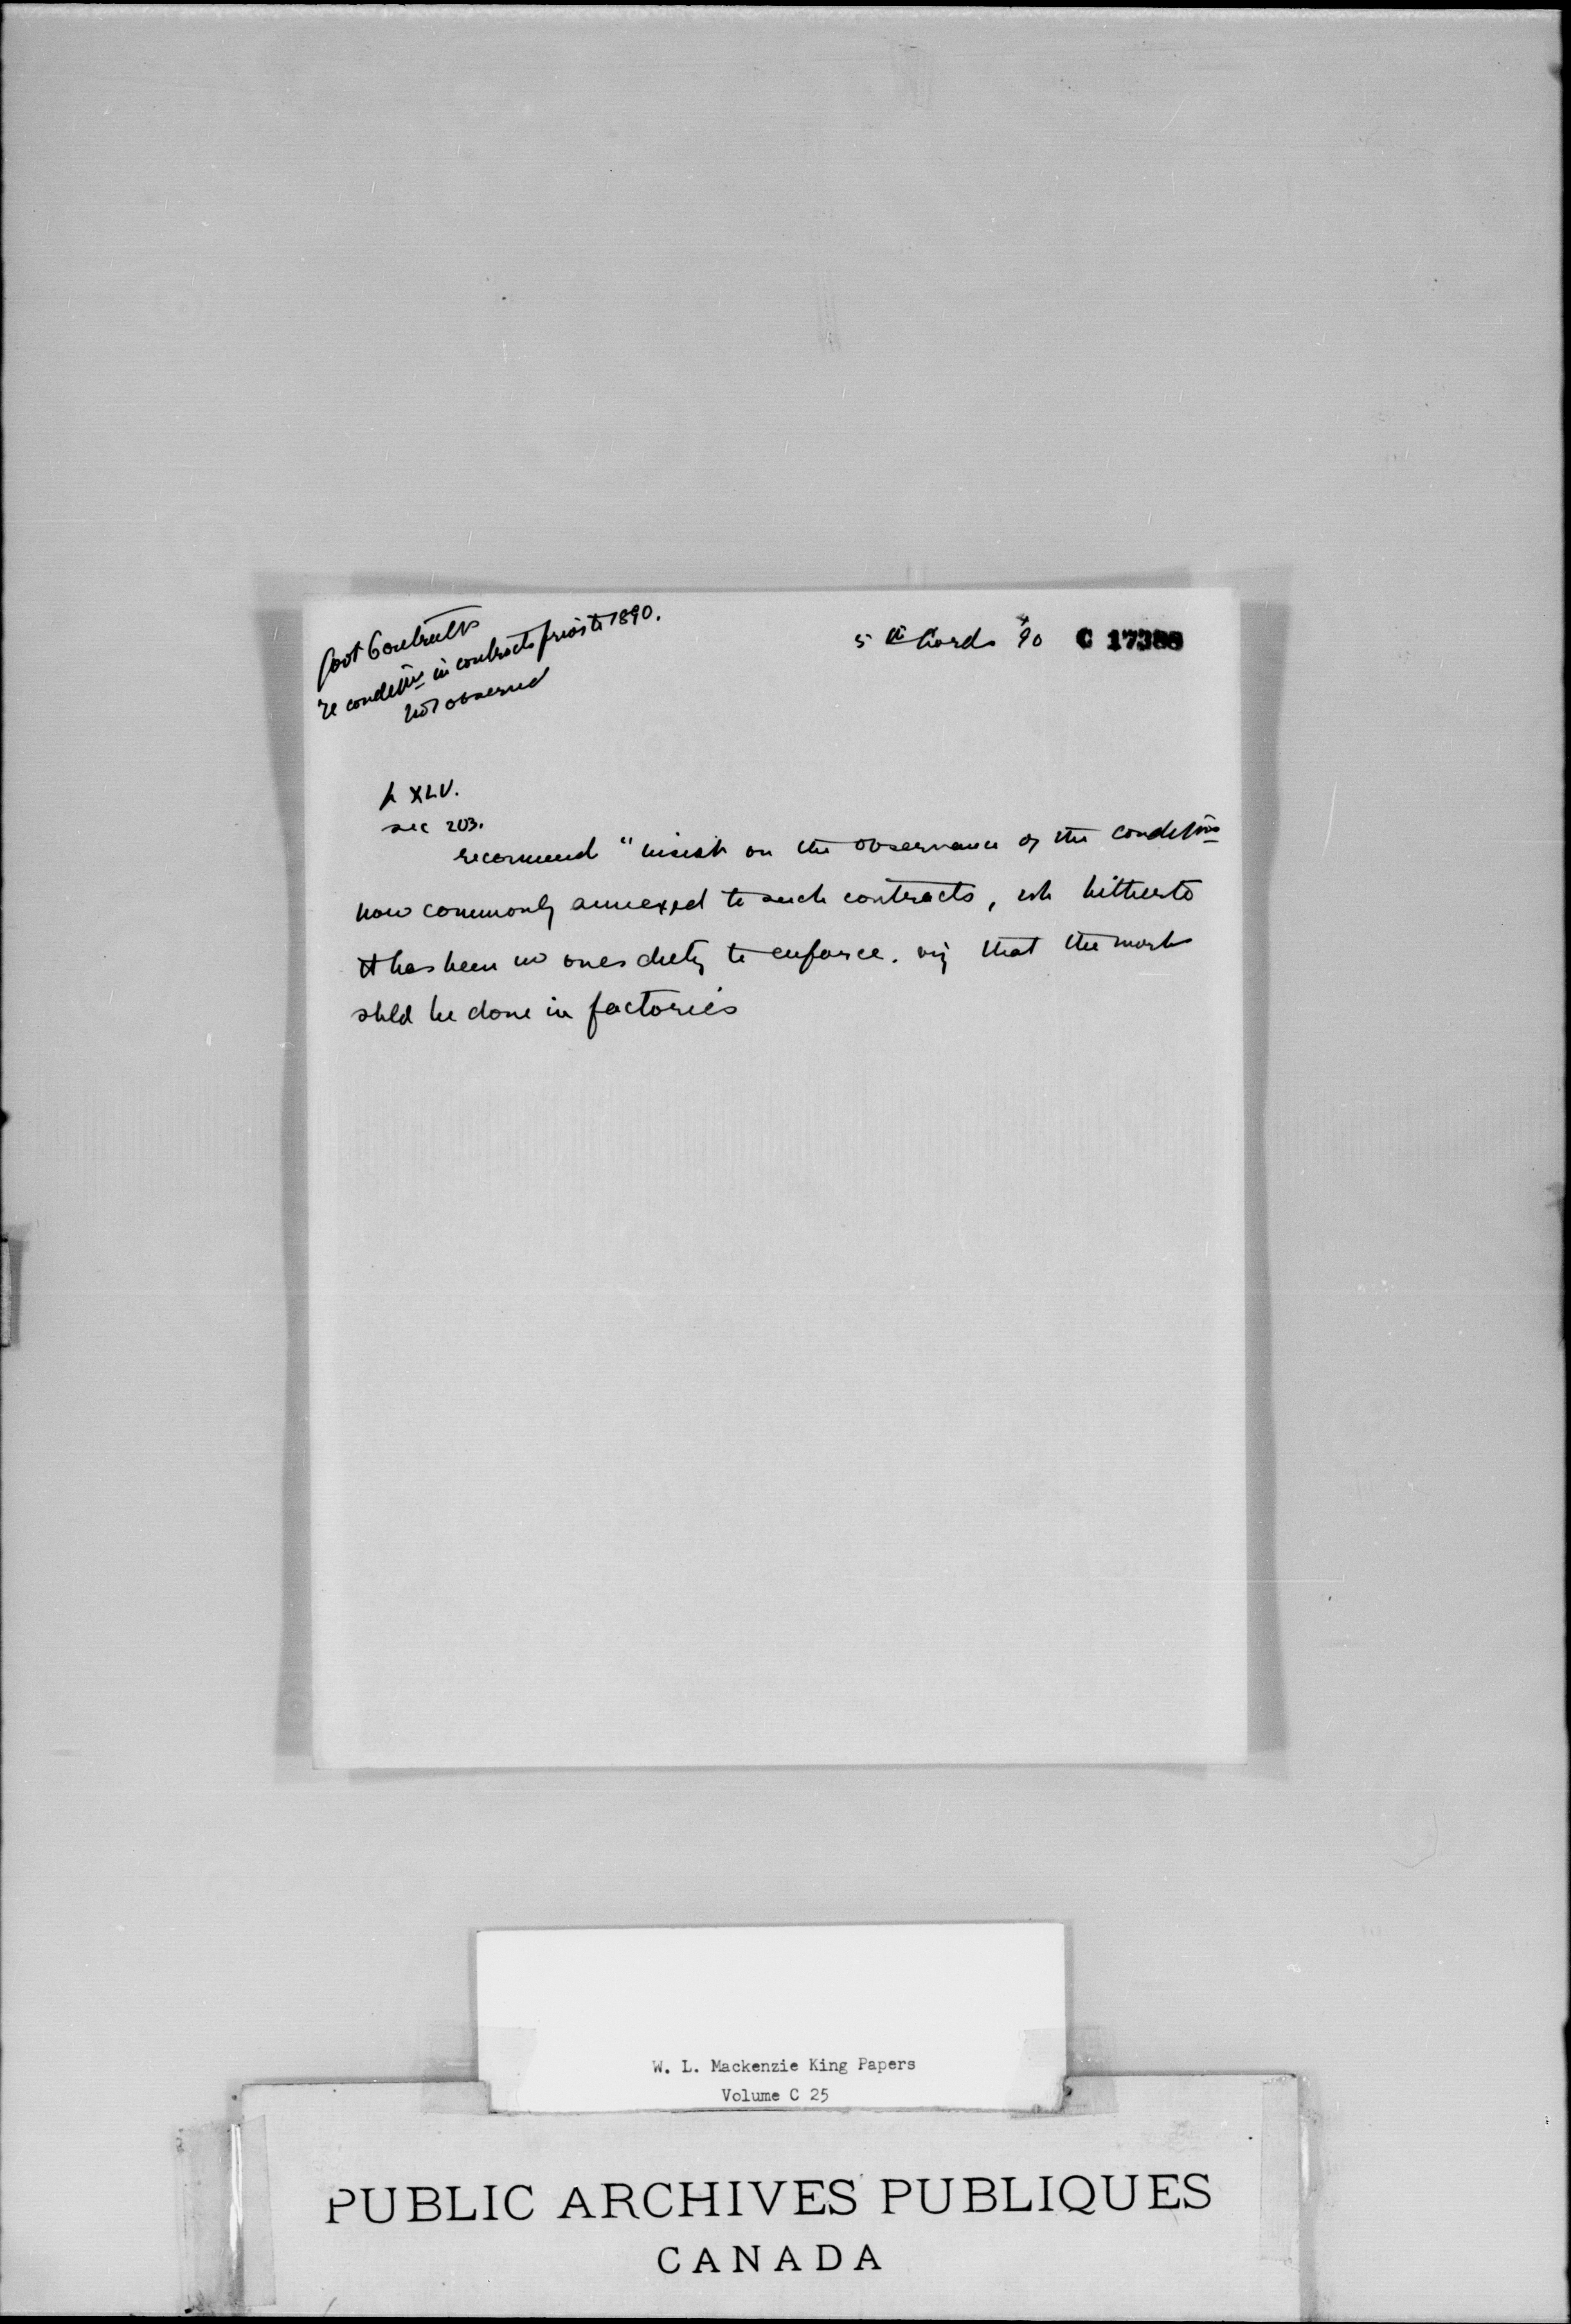 Govt Contracts
re conditns in contracts prior to 1890.
not observed
5th Lords '90 C 17388
p XLV.
sec 203.
recommend "insist on the observance of the conditns
now commonly annexed to such contracts, wh hitherto
it has been no ones duty to enforce. viz that the work
shld be done in factories
W. L. Mackenzie King Papers
Volume C 25
PUBLIC ARCHIVES PUBLIQUES
CANADA